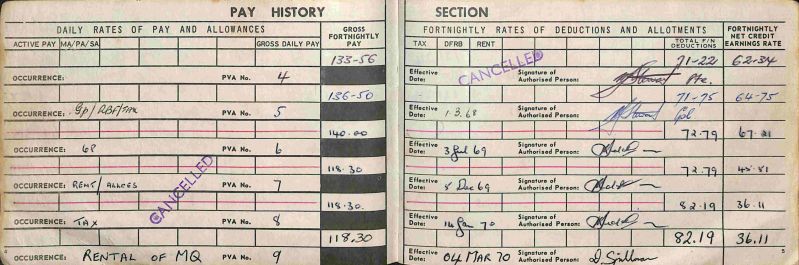 PAY HISTORY SECTION
DAILY RATES OF PAY AND ALLOWANCES
GROSS FORTNIGHTLY PAY
FORTNIGHTLY RATES OF DEDUCTIONS AND ALLOTMENTS
FORTNIGHTLY NET CREDIT EARNINGS RATE
ACTIVE PAY MA/PA/SA GROSS DAILY PAY
TAX DFRB RENT TOTAL F/N DEDUCTIONS
133-56 71-22 62-34
OCCURRENCE: PVA No. 4
Effective Date: CANCELLED Signature of Authorised Person: Pte.
136-50 71-75 64-75
OCCURRENCE: GP/RBF/TAX PVA No. 5
Effective Date: 1.3.68 Signature of Authorised Person: Cpl
140.00 72.79 67.21
OCCURRENCE: GP PVA No. 6
Effective Date: 3 Jul 69 Signature of Authorised Person:
118.30 72.79 45.51
OCCURRENCE: RENT/ALLCES PVA No. 7
Effective Date: 8 Dec 69 Signature of Authorised Person:
118.30. 82.19 36.11
CANCELLED
OCCURRENCE: TAX PVA No. 8
Effective Date: 14 Jan 70 Signature of Authorised Person:
118.30 82.19 36.11
OCCURRENCE: RENTAL OF MQ PVA No. 9
Effective Date: 04 MAR 70 Signature of Authorised Person: